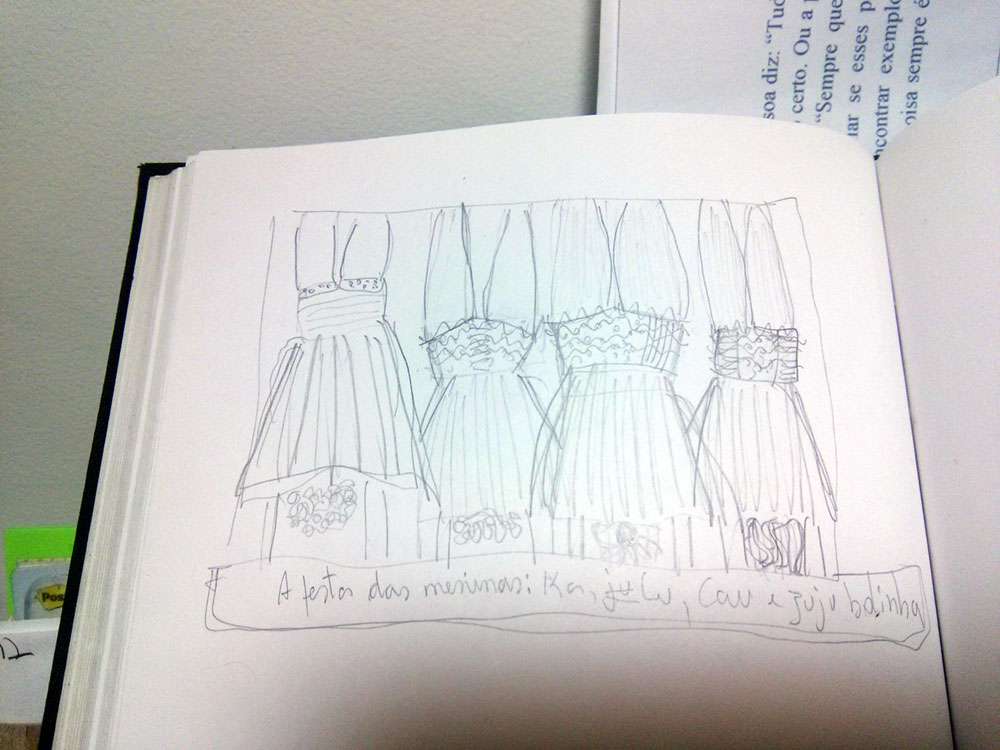 soa diz: "Tud
certo. Ou a p
"Sempre que
ar se esses p
ncontrar exemplo
oisa sempre é
A festa das meninas: Ka, Lu, Cau e Juju
Pos
12